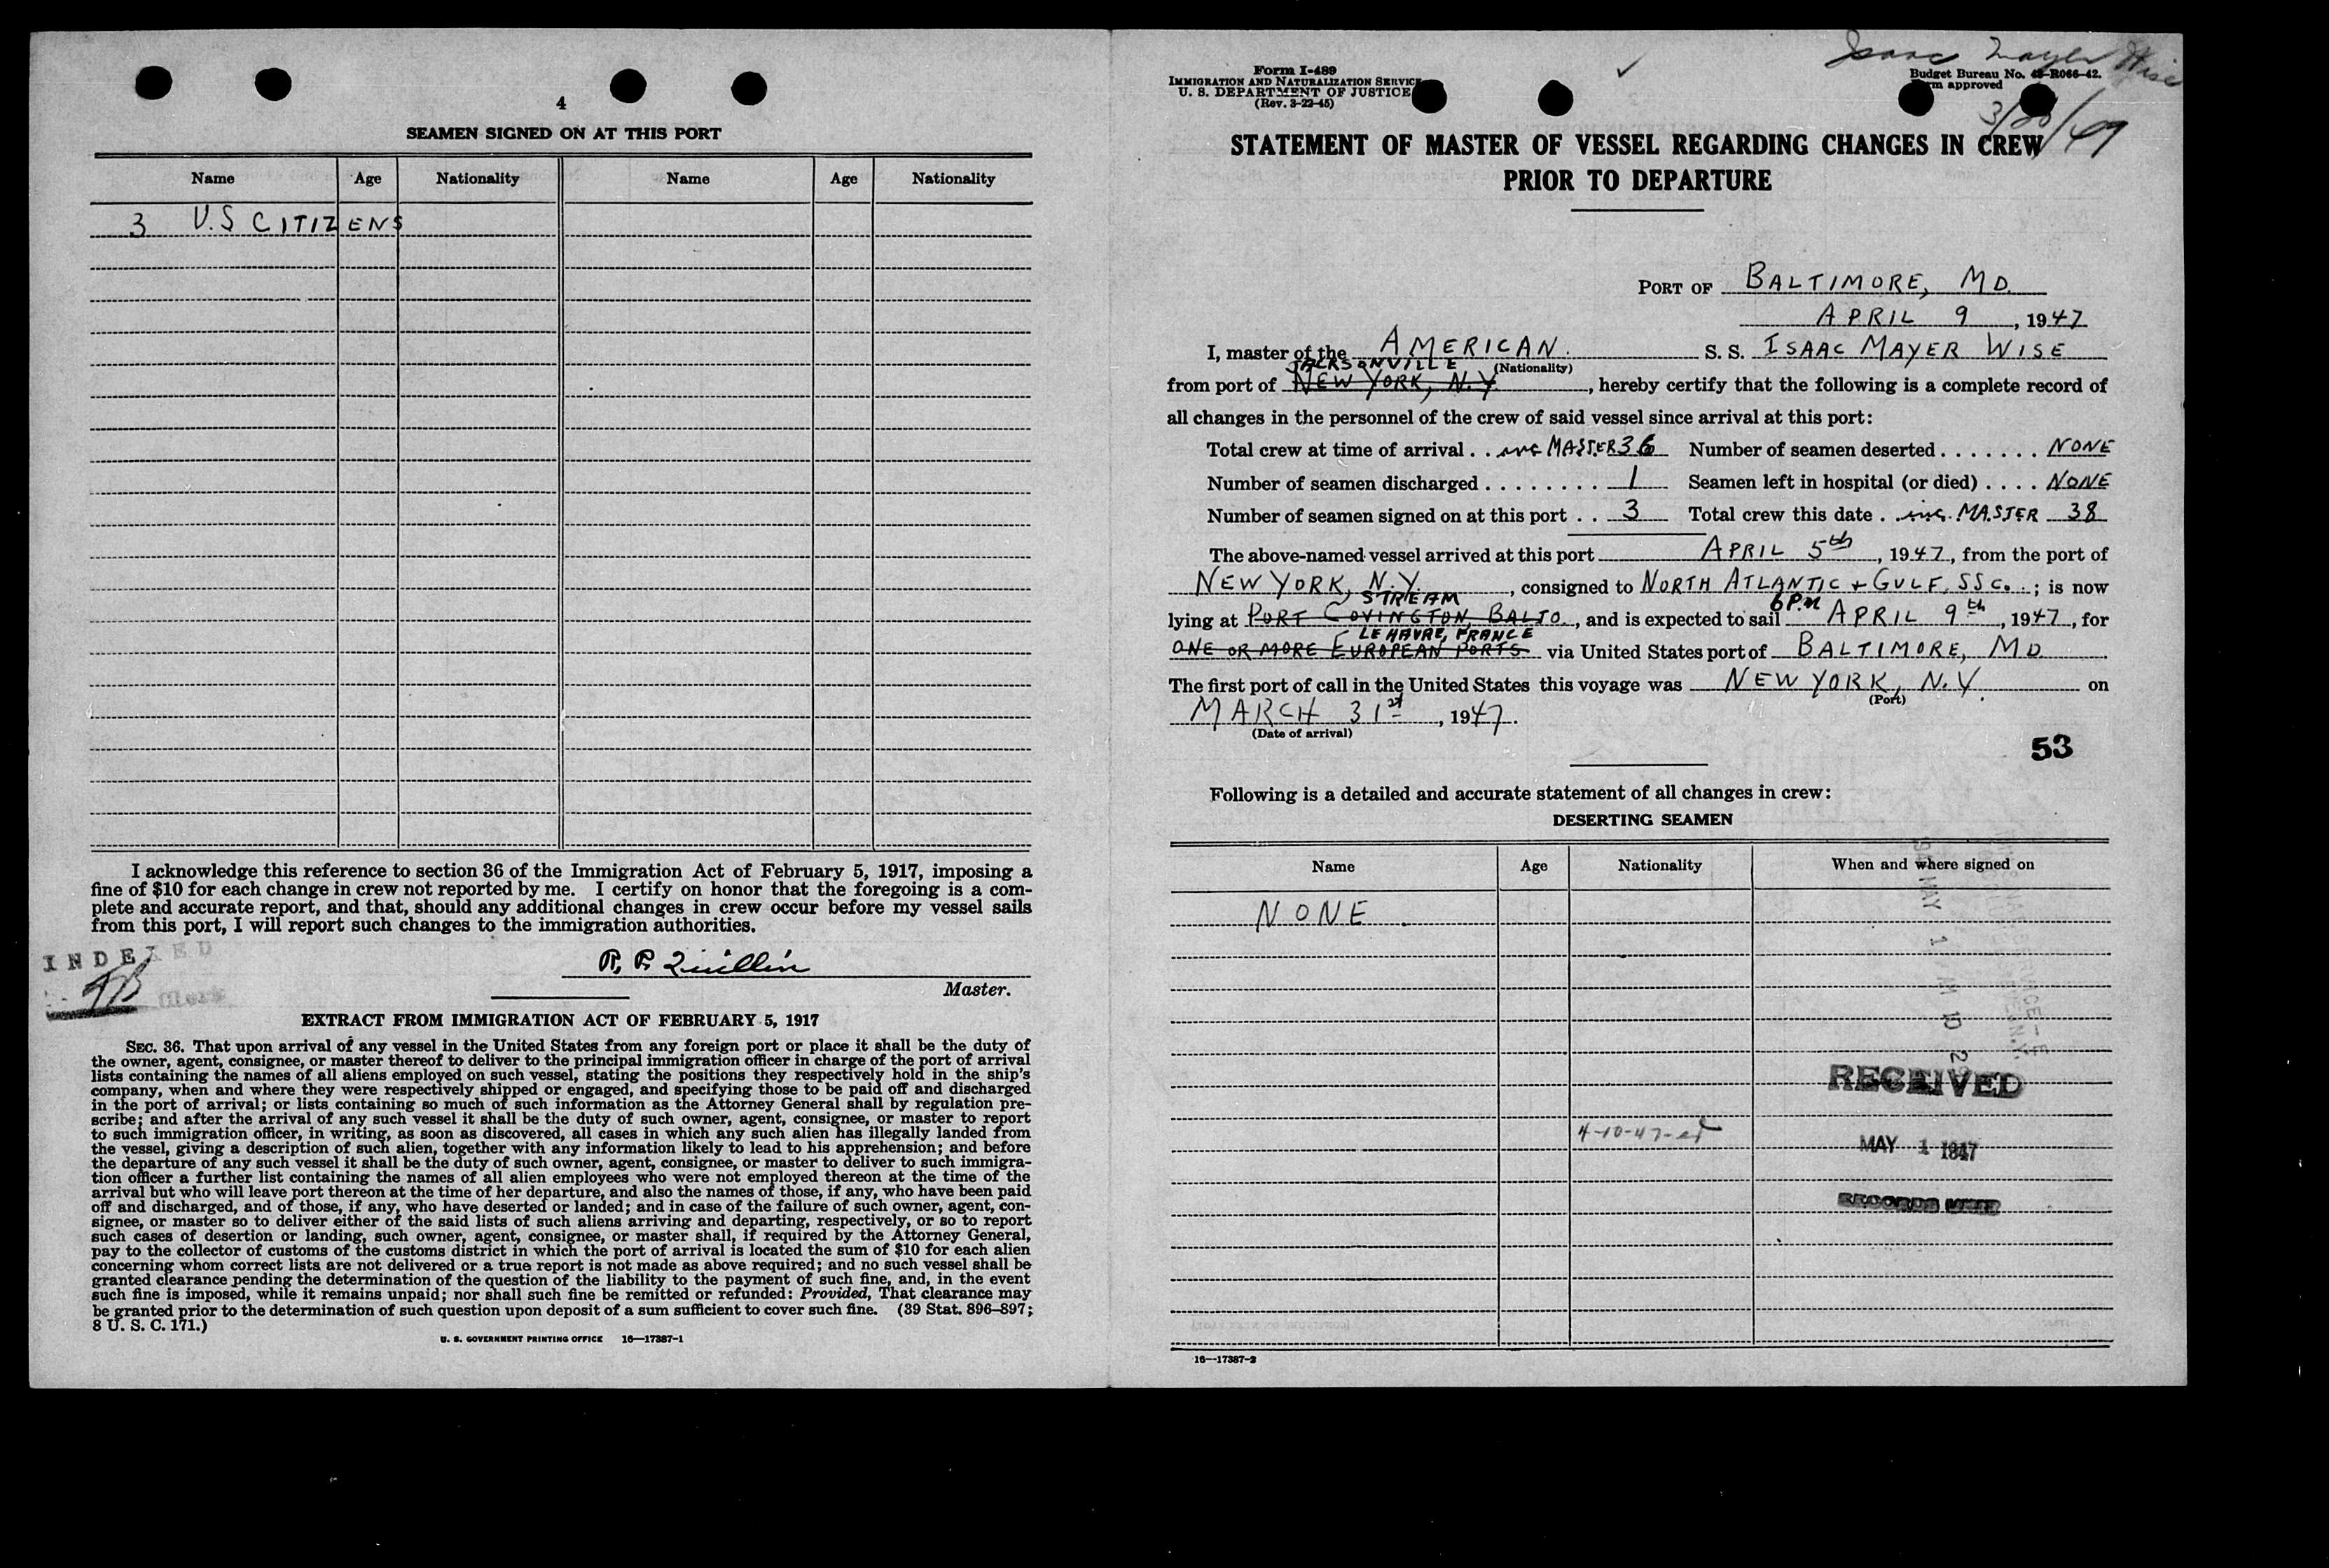 4
SEAMEN SIGNED ON AT THIS PORT
Name Age Nationality Name Age Nationality
3 U.S CITIZENS
I acknowledge this reference to section 36 of the Immigration Act of February 5, 1917, imposing a
fine of $10 for each change in crew not reported by me. I certify on honor that the foregoing is a com-
plete and accurate report, and that, should any additional changes in crew occur before my vessel sails
from this port, I will report such changes to the immigration authorities.
INDEXED
Clerk
R. P. Quillin
Master.
EXTRACT FROM IMMIGRATION ACT OF FEBRUARY 5, 1917
SEC. 36. That upon arrival of any vessel in the United States from any foreign port or place it shall be the duty of
the owner, agent, consignee, or master thereof to deliver to the principal immigration officer in charge of the port of arrival
lists containing the names of all aliens employed on such vessel, stating the positions they respectively hold in the ship's
company, when and where they were respectively shipped or engaged, and specifying those to be paid off and discharged
in the port of arrival; or lists containing so much of such information as the Attorney General shall by regulation pre-
scribe; and after the arrival of any such vessel it shall be the duty of such owner, agent, consignee, or master to report
to such immigration officer, in writing, as soon as discovered, all cases in which any such alien has illegally landed from
the vessel, giving a description of such alien, together with any information likely to lead to his apprehension; and before
the departure of any such vessel it shall be the duty of such owner, agent, consignee, or master to deliver to such immigra-
tion officer a further list containing the names of all alien employees who were not employed thereon at the time of the
arrival but who will leave port thereon at the time of her departure, and also the names of those, if any, who have been paid
off and discharged, and of those, if any, who have deserted or landed; and in case of the failure of such owner, agent, con-
signee, or master so to deliver either of the said lists of such aliens arriving and departing, respectively, or so to report
such cases of desertion or landing, such owner, agent, consignee, or master shall, if required by the Attorney General,
pay to the collector of customs of the customs district in which the port of arrival is located the sum of $10 for each alien
concerning whom correct lists are not delivered or a true report is not made as above required; and no such vessel shall be
granted clearance pending the determination of the question of the liability to the payment of such fine, and, in the event
such fine is imposed, while it remains unpaid; nor shall such fine be remitted or refunded: Provided, That clearance may
be granted prior to the determination of such question upon deposit of a sum sufficient to cover such fine. (39 Stat. 896–897;
8 U. S. C. 171.)
U. S. GOVERNMENT PRINTING OFFICE 16—17387-1
Isaac Mayer Wise
Form I-489
IMMIGRATION AND NATURALIZATION SERVICE
U. S. DEPARTMENT OF JUSTICE
(Rev. 3-22-45)
Budget Bureau No. 43-R066-42.
approved
STATEMENT OF MASTER OF VESSEL REGARDING CHANGES IN CREW
PRIOR TO DEPARTURE
PORT OF BALTIMORE, MD.
APRIL 9, 1947
I, master of the AMERICAN. S. S. ISAAC MAYER WISE
JACKSONVILLE (Nationality)
from port of NEW YORK, N.Y., hereby certify that the following is a complete record of
all changes in the personnel of the crew of said vessel since arrival at this port:
Total crew at time of arrival . . inc MASTER 36 Number of seamen deserted . . . . . . . NONE
Number of seamen discharged . . . . . . . . 1 Seamen left in hospital (or died) . . . . NONE
Number of seamen signed on at this port . . 3 Total crew this date . inc. MASTER 38
The above-named vessel arrived at this port APRIL 5th, 1947, from the port of
NEW YORK, N.Y., consigned to NORTH ATLANTIC + GULF. SS Co.; is now
STREAM 6 P.M
lying at PORT COVINGTON, BALTO., and is expected to sail APRIL 9th, 1947, for
LE HAVRE, FRANCE
ONE OR MORE EUROPEAN PORTS via United States port of BALTIMORE, MD.
The first port of call in the United States this voyage was NEW YORK, N.Y. on
(Port)
MARCH 31st, 1947.
(Date of arrival)
53
Following is a detailed and accurate statement of all changes in crew:
DESERTING SEAMEN
Name Age Nationality When and where signed on
NONE
RECEIVED
4-10-47
MAY 1 1947
16—17387-2